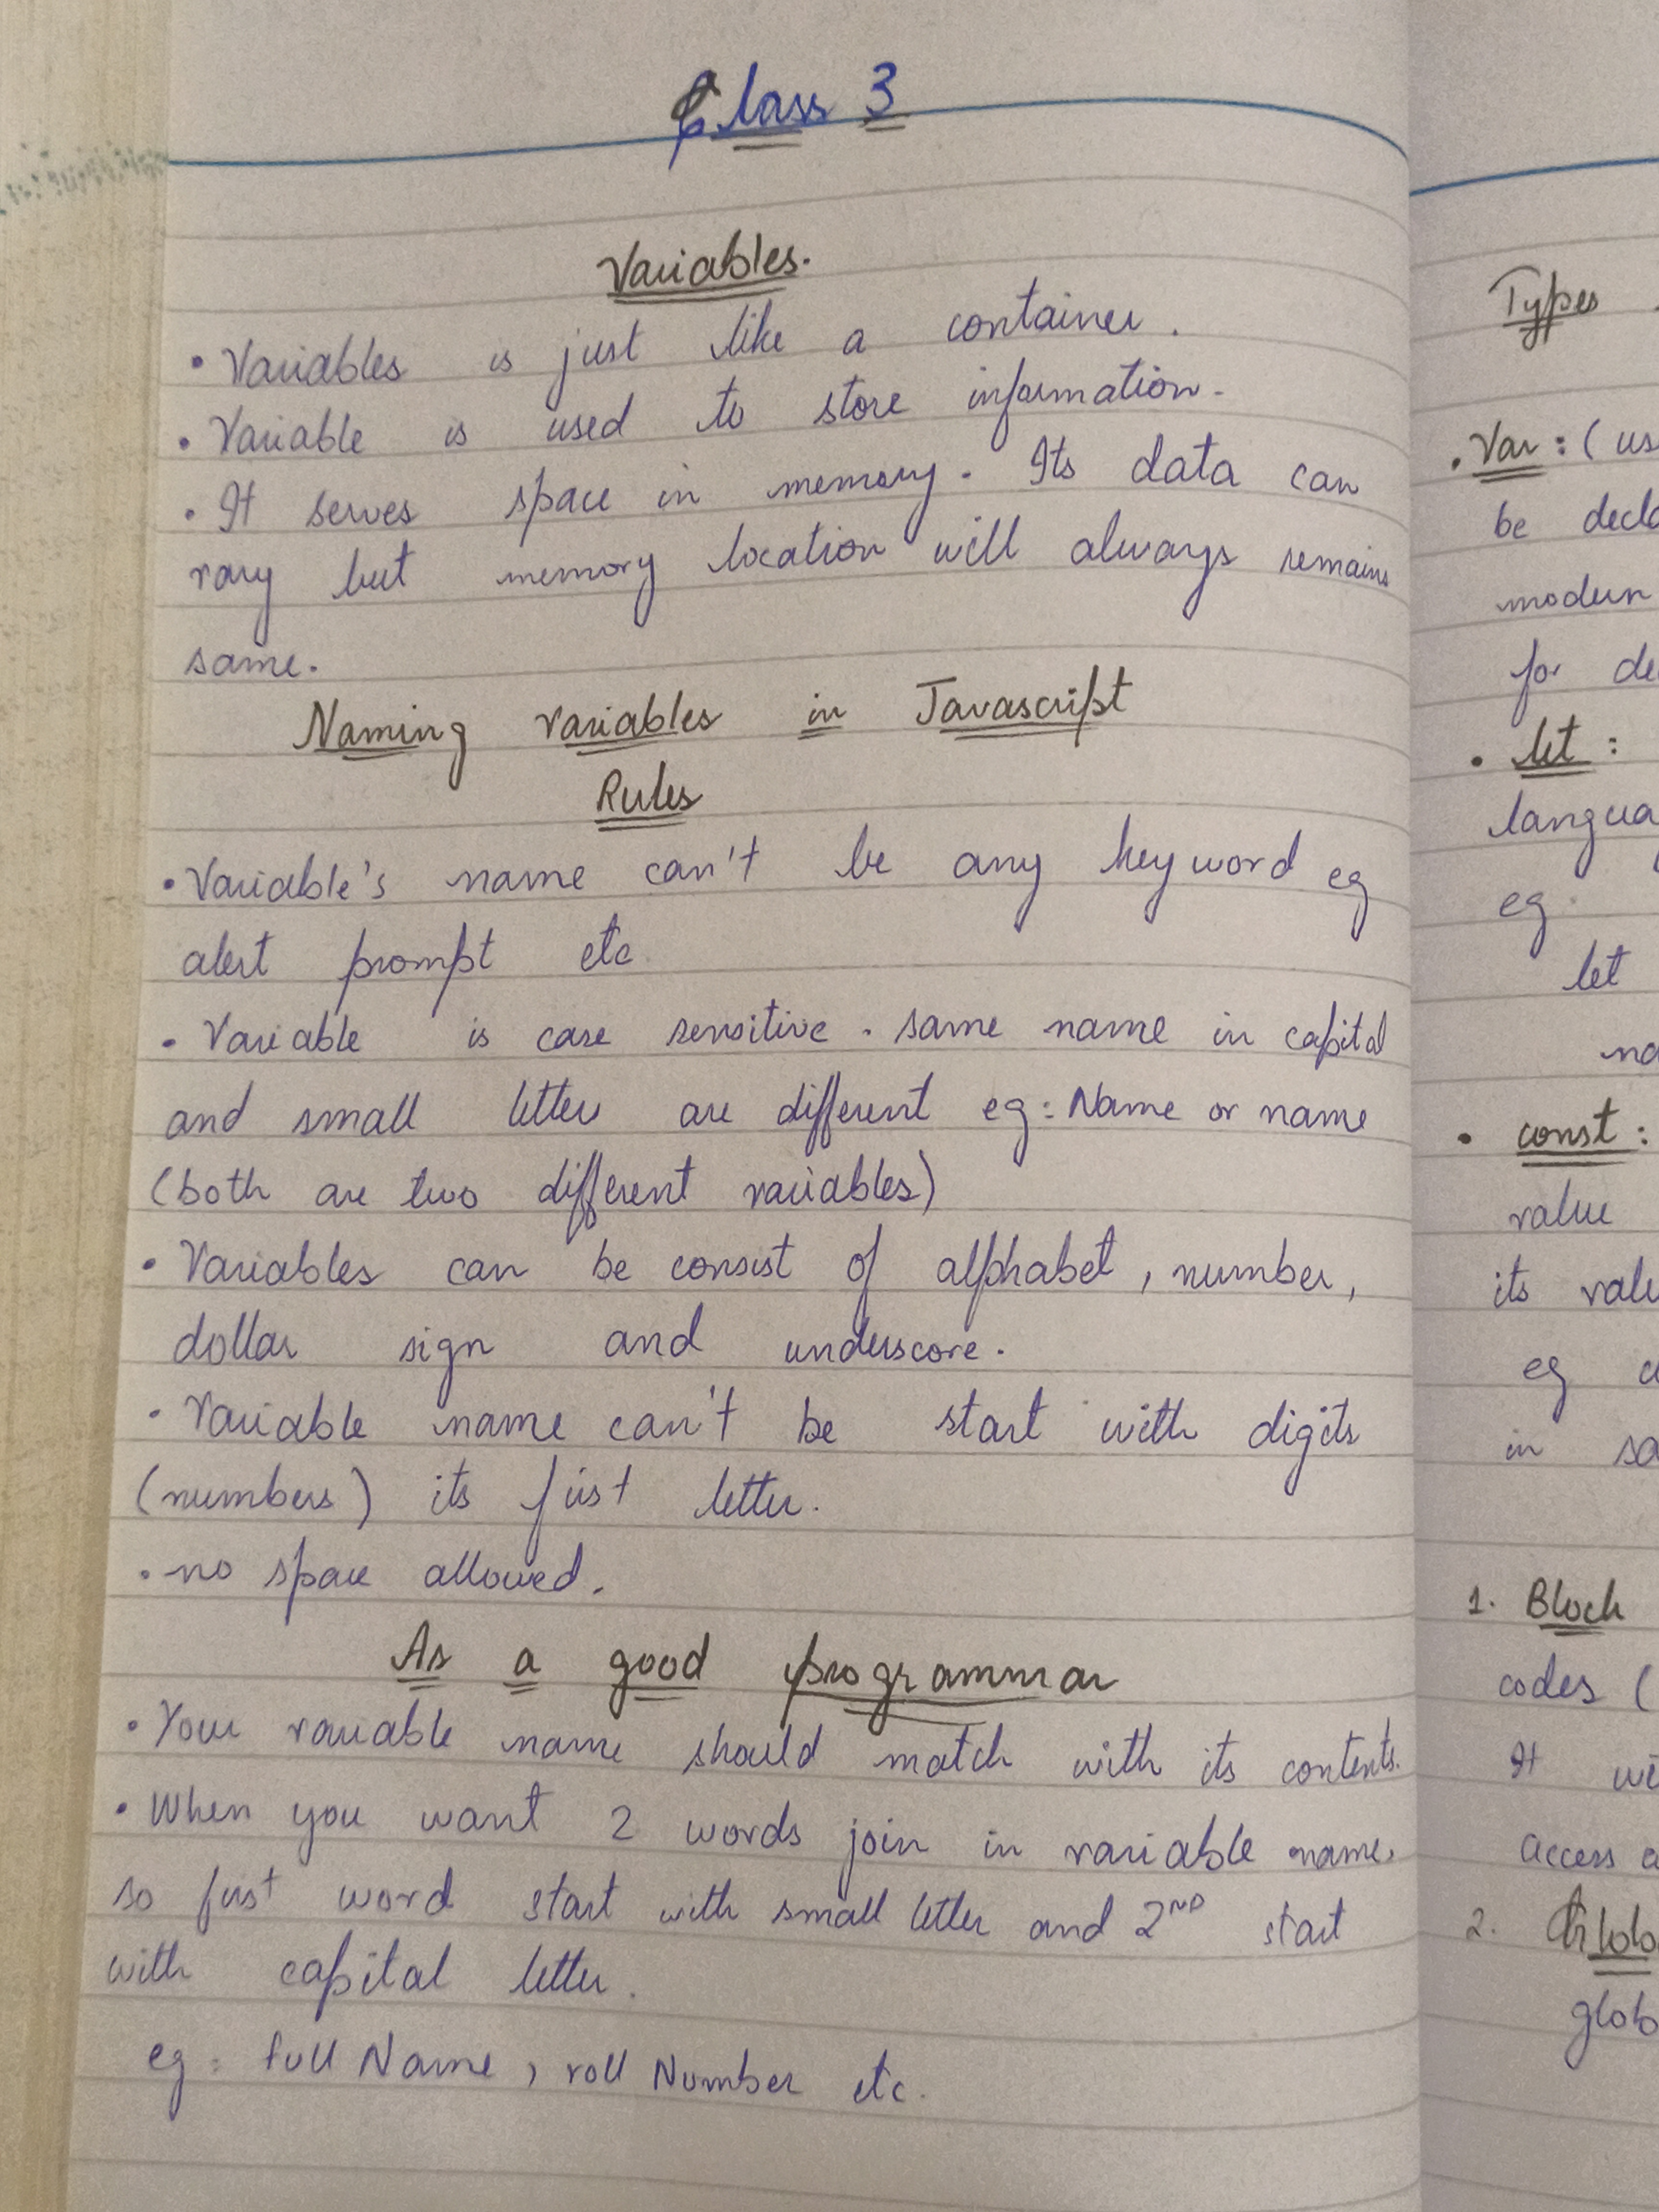 Class 3
Variables.
• Variables is just like a container.
• Variable is used to store information.
• It serves space in memory. Its data can
vary but memory location will always remains
same.
Naming variables in Javascript
Rules
• Variable's name can't be any keyword eg
alert prompt etc
• Variable is case sensitive. same name in capital
and small letter are different eg: Name or name
(both are two different variables)
• Variables can be consist of alphabet, number,
dollar sign and underscore.
• Variable name can't be start with digits
(numbers) its first letter.
• no space allowed.
As a good programmar
• Your variable name should match with its contents.
• When you want 2 words join in variable name,
so first word start with small letter and 2ND start
with capital letter.
eg: full Name, roll Number etc.
Types
• Var: (us
be decla
modern
for de
• let:
langua
eg
let
na
• const:
value
its valu
eg c
in sa
1. Block
codes (
It wi
access a
2. Globa
glob